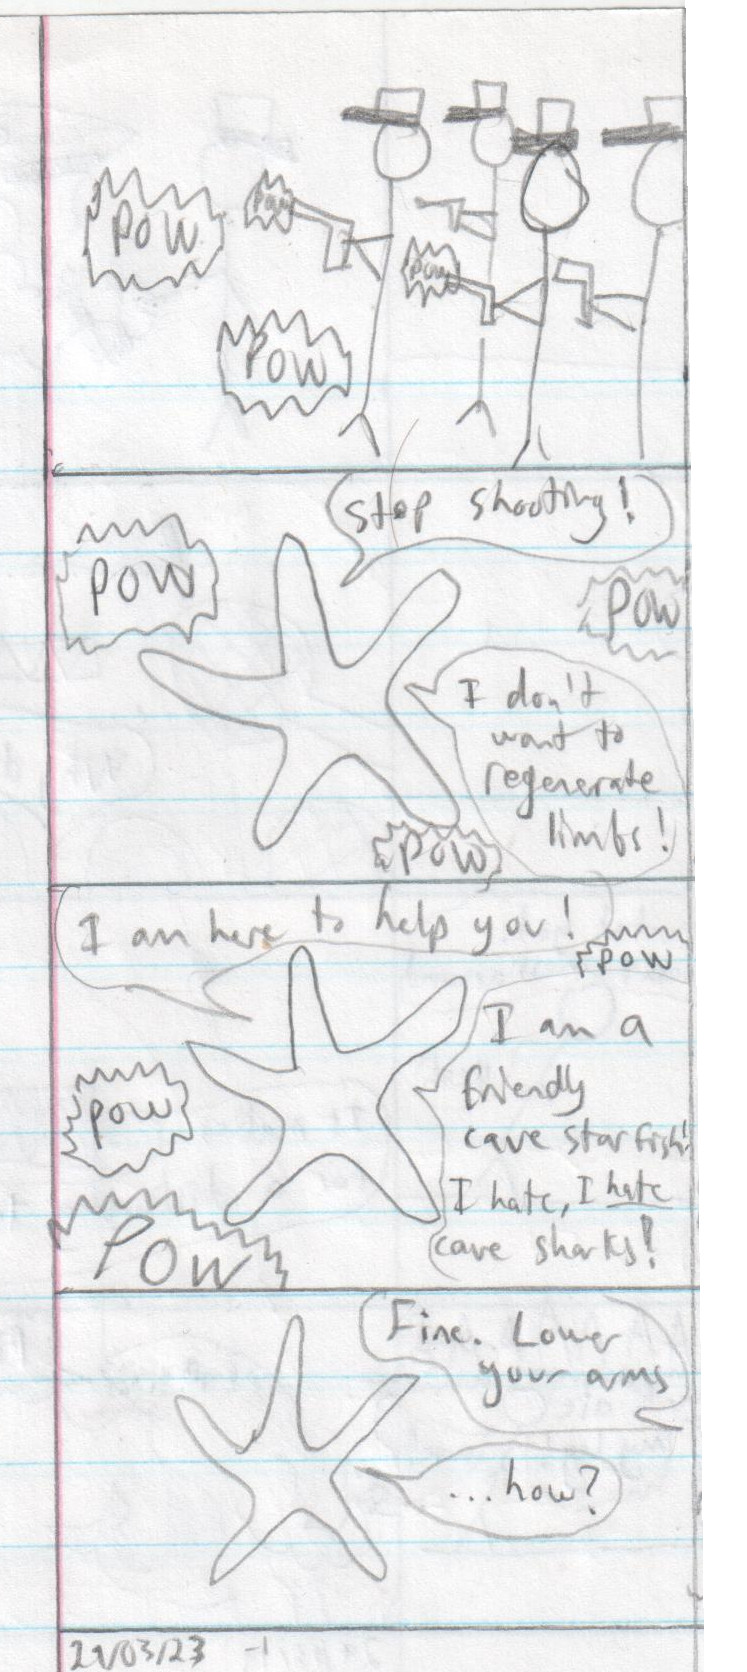 POW
POW
POW
POW
stop shooting!
POW
POW
I don't
want to
regenerate
limbs!
POW
I am here to help you!
POW
I am a
friendly
cave starfish!
I hate, I hate
cave sharks!
POW
POW
Fine. Lower
your arms
...how?
21/03/23